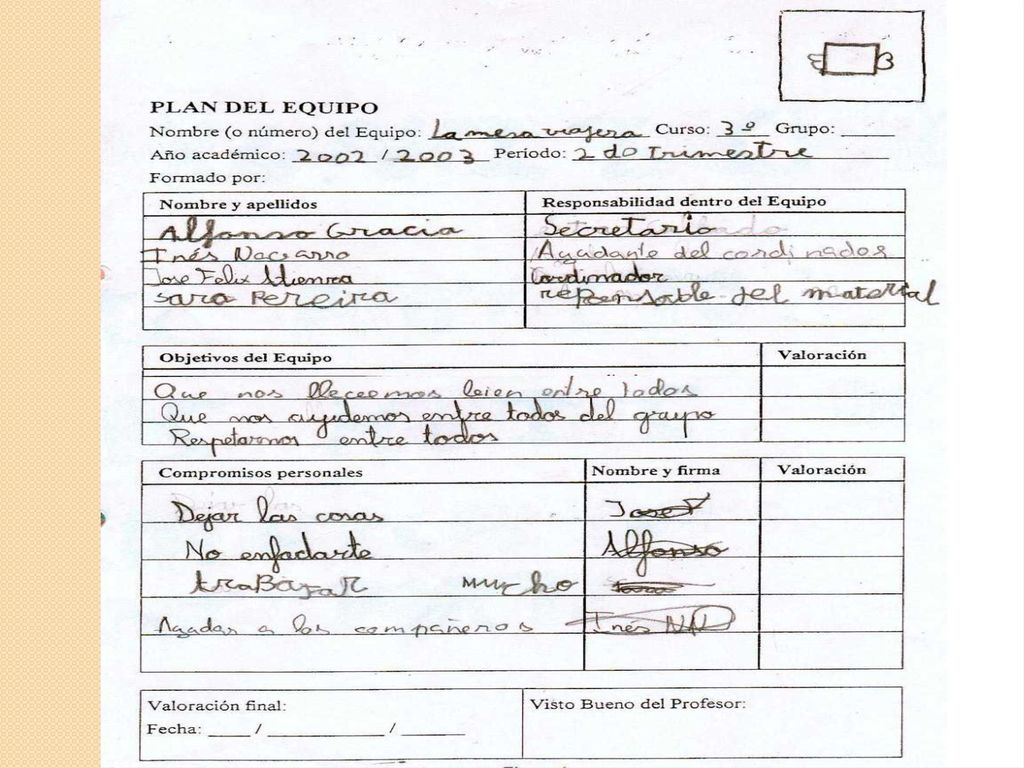 PLAN DEL EQUIPO
Nombre (o número) del Equipo: La mesa viajera Curso: 3º Grupo:
Año académico: 2002 / 2003 Período: 2do trimestre
Formado por:
Nombre y apellidos Responsabilidad dentro del Equipo
Alfonso Gracia Secretario
Inés Navarro Ayudante del cordinador
Jose Felix Cordinador
Sara Pereira responsable del material
Objetivos del Equipo Valoración
Que nos llevemos bien entre todos
Que nos ayudemos entre todos del grupo
Respetarnos entre todos
Compromisos personales Nombre y firma Valoración
Dejar las cosas Jose F
No enfadarte Alfonso
traBajar mucho
Ayudar a los compañeros Inés
Valoración final: Visto Bueno del Profesor:
Fecha: ____ / ____________ / ______